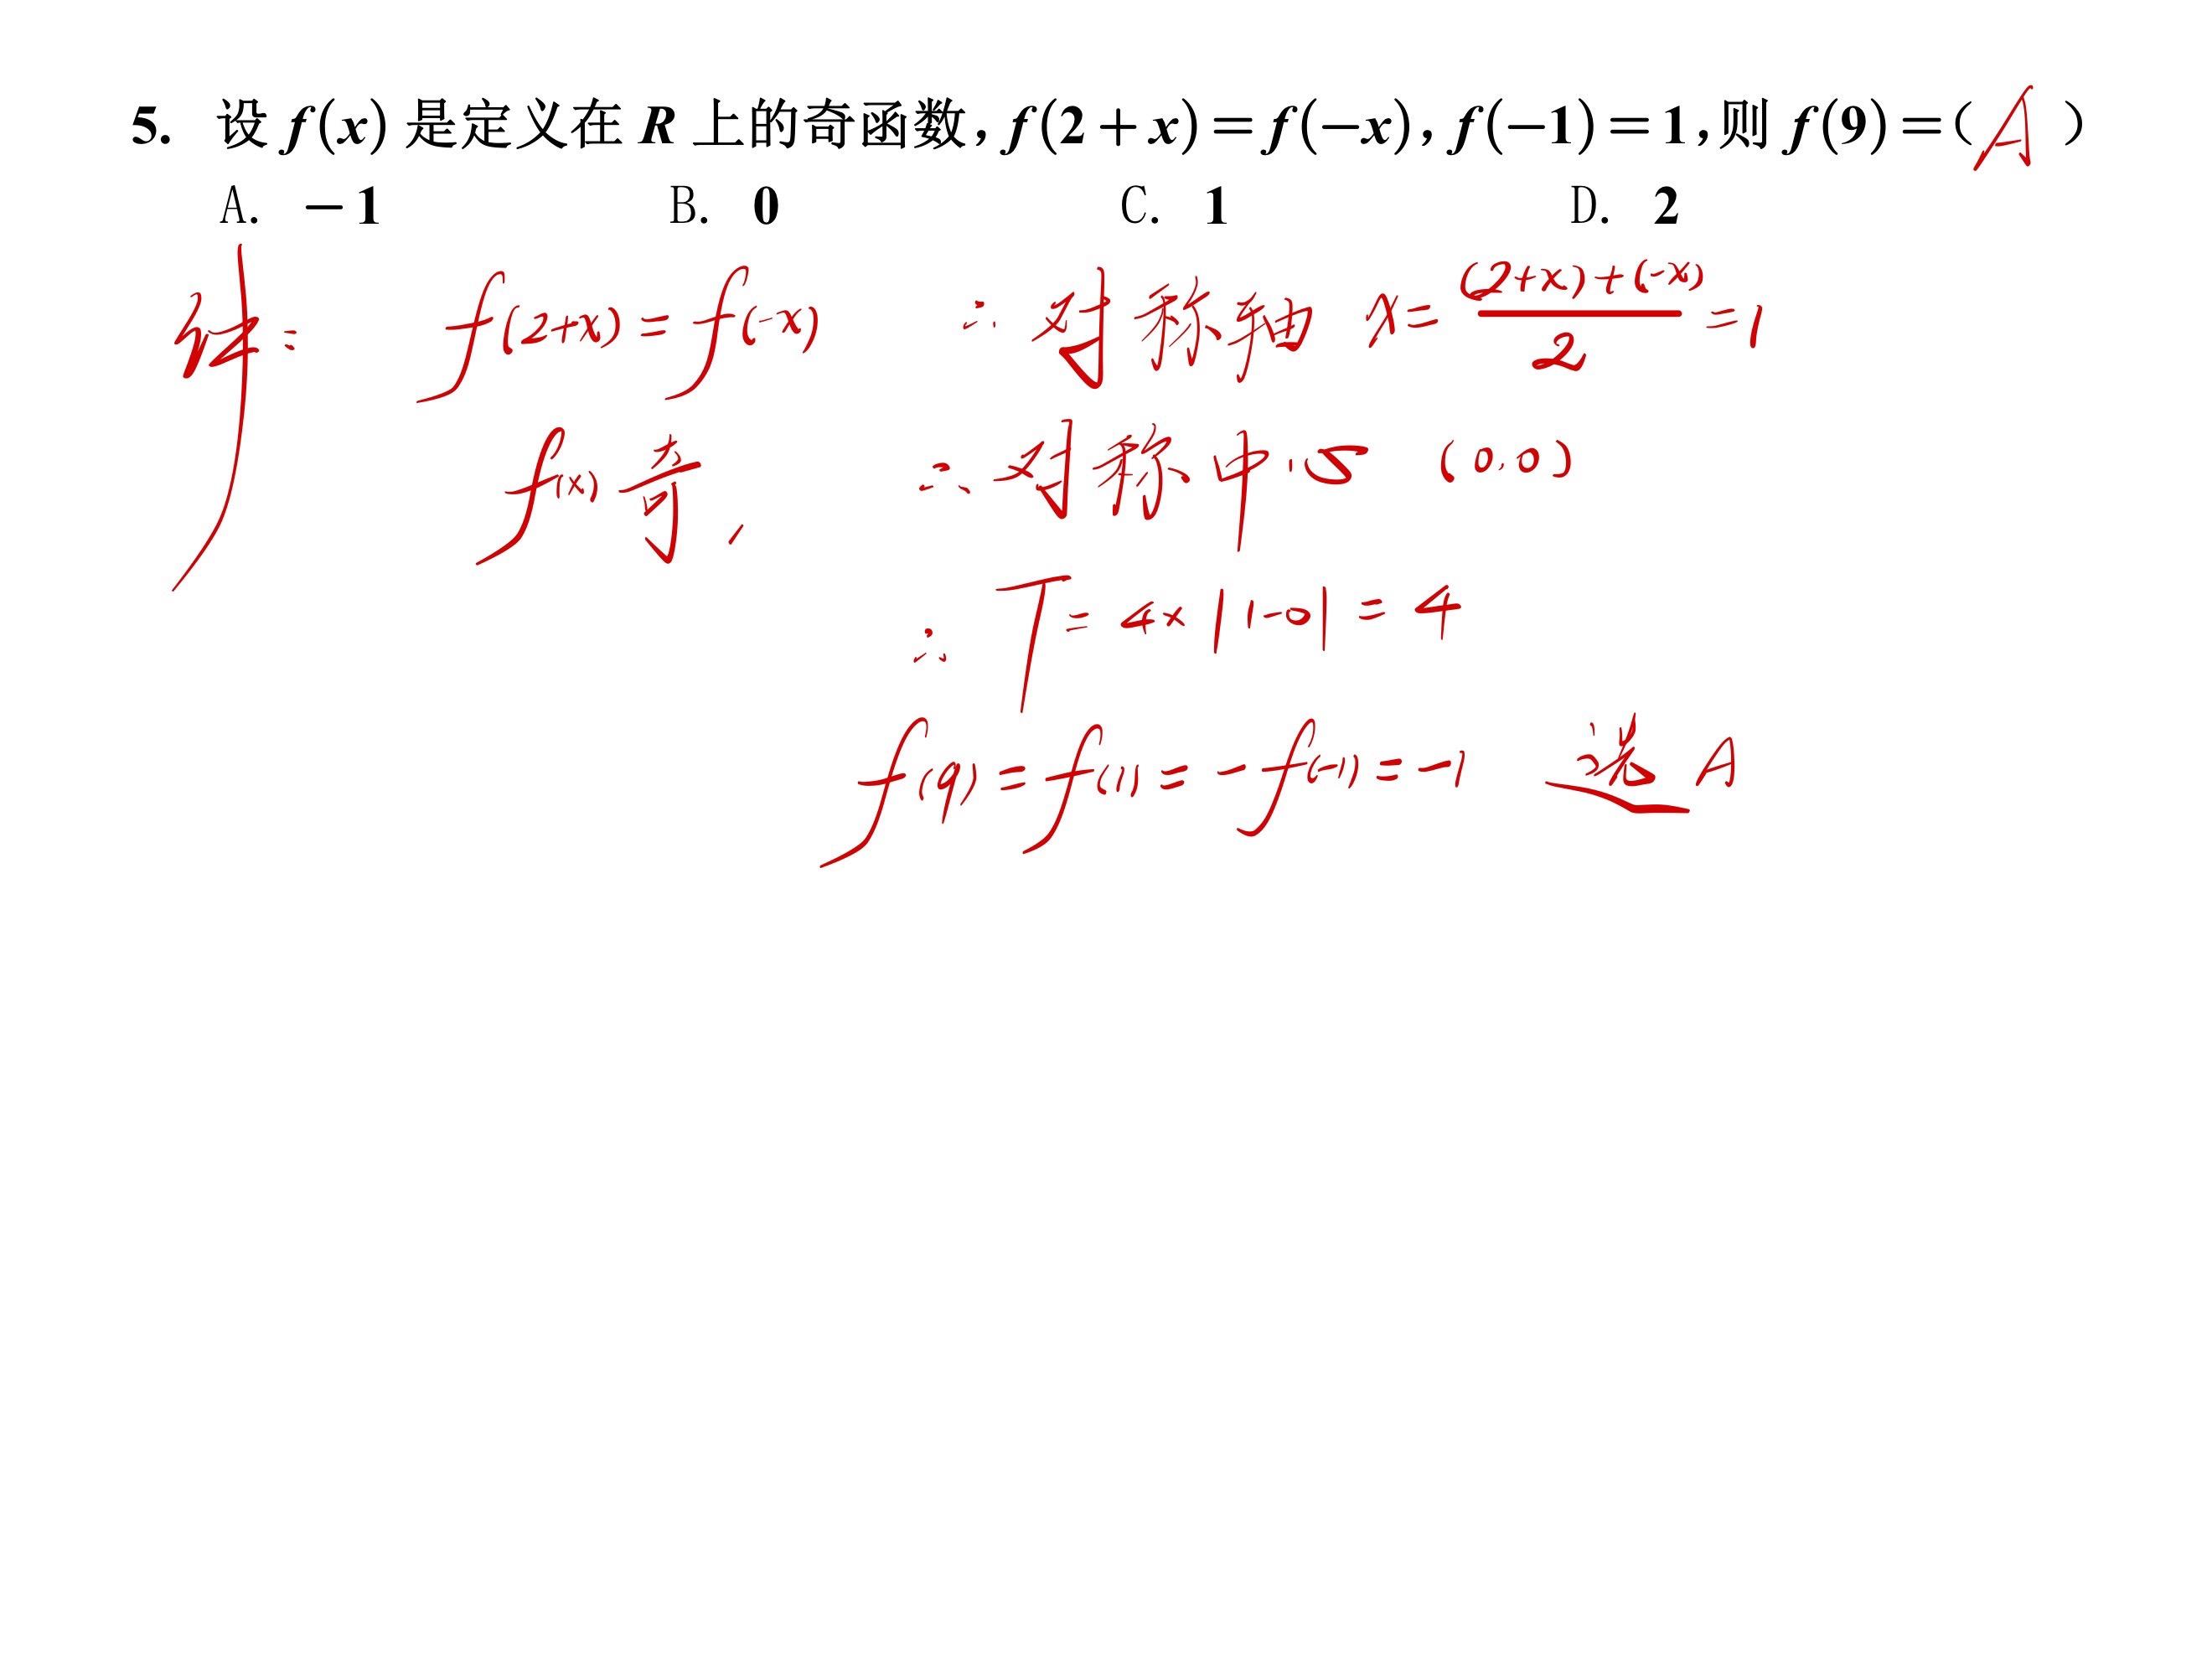 5. 设 f(x) 是定义在 R 上的奇函数, f(2+x)=f(-x), f(-1)=1,则 f(9)=( A )
A. -1 B. 0 C. 1 D. 2
解: f(2+x)=f(-x) ∴对称轴 x=((2+x)+(-x))/2=1
f(x)奇, ∴对称中心 (0,0)
∴ T=4×|1-0|=4
f(9)=f(1)=-f(-1)=-1 选A